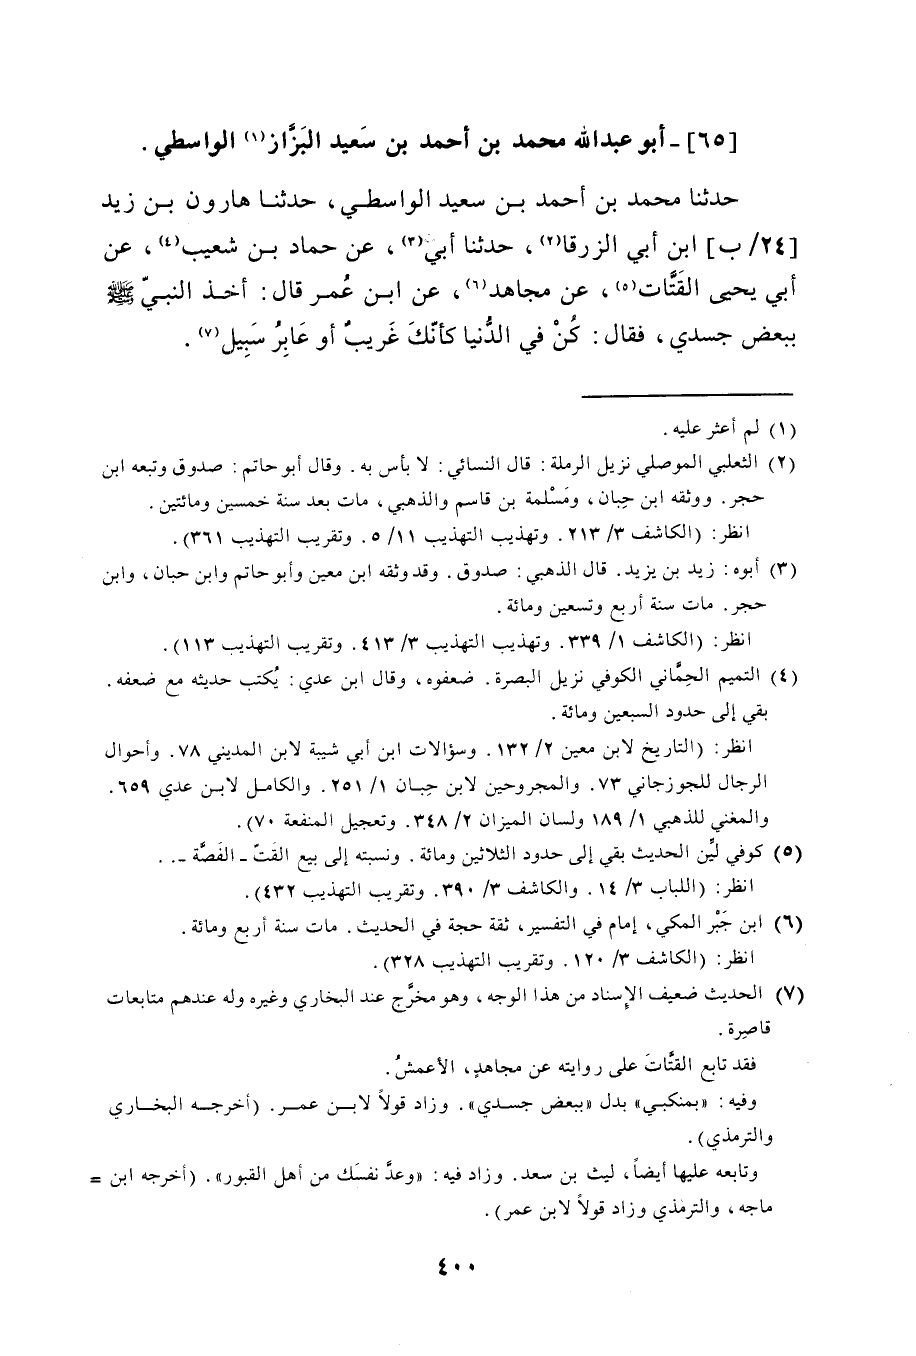 [٦٥] ـ أبو عبدالله محمد بن أحمد بن سَعيد البَزَّاز(١) الواسطي .
حدثنا محمد بن أحمد بن سعيد الواسطي ، حدثنا هارون بن زيد
[٢٤/ ب] ابن أبي الزرقا(٢) ، حدثنا أبي(٣) ، عن حماد بن شعيب(٤) ، عن
أبي يحيى القَتَّات(٥) ، عن مجاهد(٦) ، عن ابن عُمر قال : أخذ النبيّ ﷺ
ببعض جسدي ، فقال : كُنْ في الدُّنيا كأنّكَ غَريبٌ أو عَابِرُ سَبِيل(٧) .
(١) لم أعثر عليه .
(٢) الثعلبي الموصلي نزيل الرملة : قال النسائي : لا بأس به . وقال أبو حاتم : صدوق وتبعه ابن
حجر . ووثقه ابن حِبان ، ومَسْلمة بن قاسم والذهبي ، مات بعد سنة خمسين ومائتين .
انظر : (الكاشف ٣/ ٢١٣ . وتهذيب التهذيب ١١/ ٥ . وتقريب التهذيب ٣٦١) .
(٣) أبوه : زيد بن يزيد . قال الذهبي : صدوق . وقد وثقه ابن معين وأبو حاتم وابن حبان ، وابن
حجر . مات سنة أربع وتسعين ومائة .
انظر : (الكاشف ١/ ٣٣٩ . وتهذيب التهذيب ٣/ ٤١٣ . وتقريب التهذيب ١١٣) .
(٤) التميم الحِمَّاني الكوفي نزيل البصرة . ضعفوه ، وقال ابن عدي : يُكتب حديثه مع ضعفه .
بقي إلى حدود السبعين ومائة .
انظر : (التاريخ لابن معين ٢/ ١٣٢ . وسؤالات ابن أبي شيبة لابن المديني ٧٨ . وأحوال
الرجال للجوزجاني ٧٣ . والمجروحين لابن حِبان ١/ ٢٥١ . والكامل لابن عدي ٦٥٩ .
والمغني للذهبي ١/ ١٨٩ ولسان الميزان ٢/ ٣٤٨ . وتعجيل المنفعة ٧٠) .
(٥) كوفي ليِّن الحديث بقي إلى حدود الثلاثين ومائة . ونسبته إلى بيع القَتّ ـ الفَصَّة ـ . .
انظر : (اللباب ٣/ ١٤ . والكاشف ٣/ ٣٩٠ . وتقريب التهذيب ٤٣٢) .
(٦) ابن جَبْر المكي ، إمام في التفسير ، ثقة حجة في الحديث . مات سنة أربع ومائة .
انظر : (الكاشف ٣/ ١٢٠ . وتقريب التهذيب ٣٢٨) .
(٧) الحديث ضعيف الإسناد من هذا الوجه ، وهو مخرَّج عند البخاري وغيره وله عندهم متابعات
قاصِرة .
فقد تابع القتَّاتَ على روايته عن مجاهدٍ ، الأعمشُ .
وفيه : «بمنكبي» بدل «ببعض جسدي» . وزاد قولاً لابن عمر . (أخرجه البخاري
والترمذي) .
وتابعه عليها أيضاً ، ليث بن سعد . وزاد فيه : «وعدَّ نفسَك من أهل القبور» . (أخرجه ابن =
ماجه ، والترمذي وزاد قولاً لابن عمر) .
٤٠٠